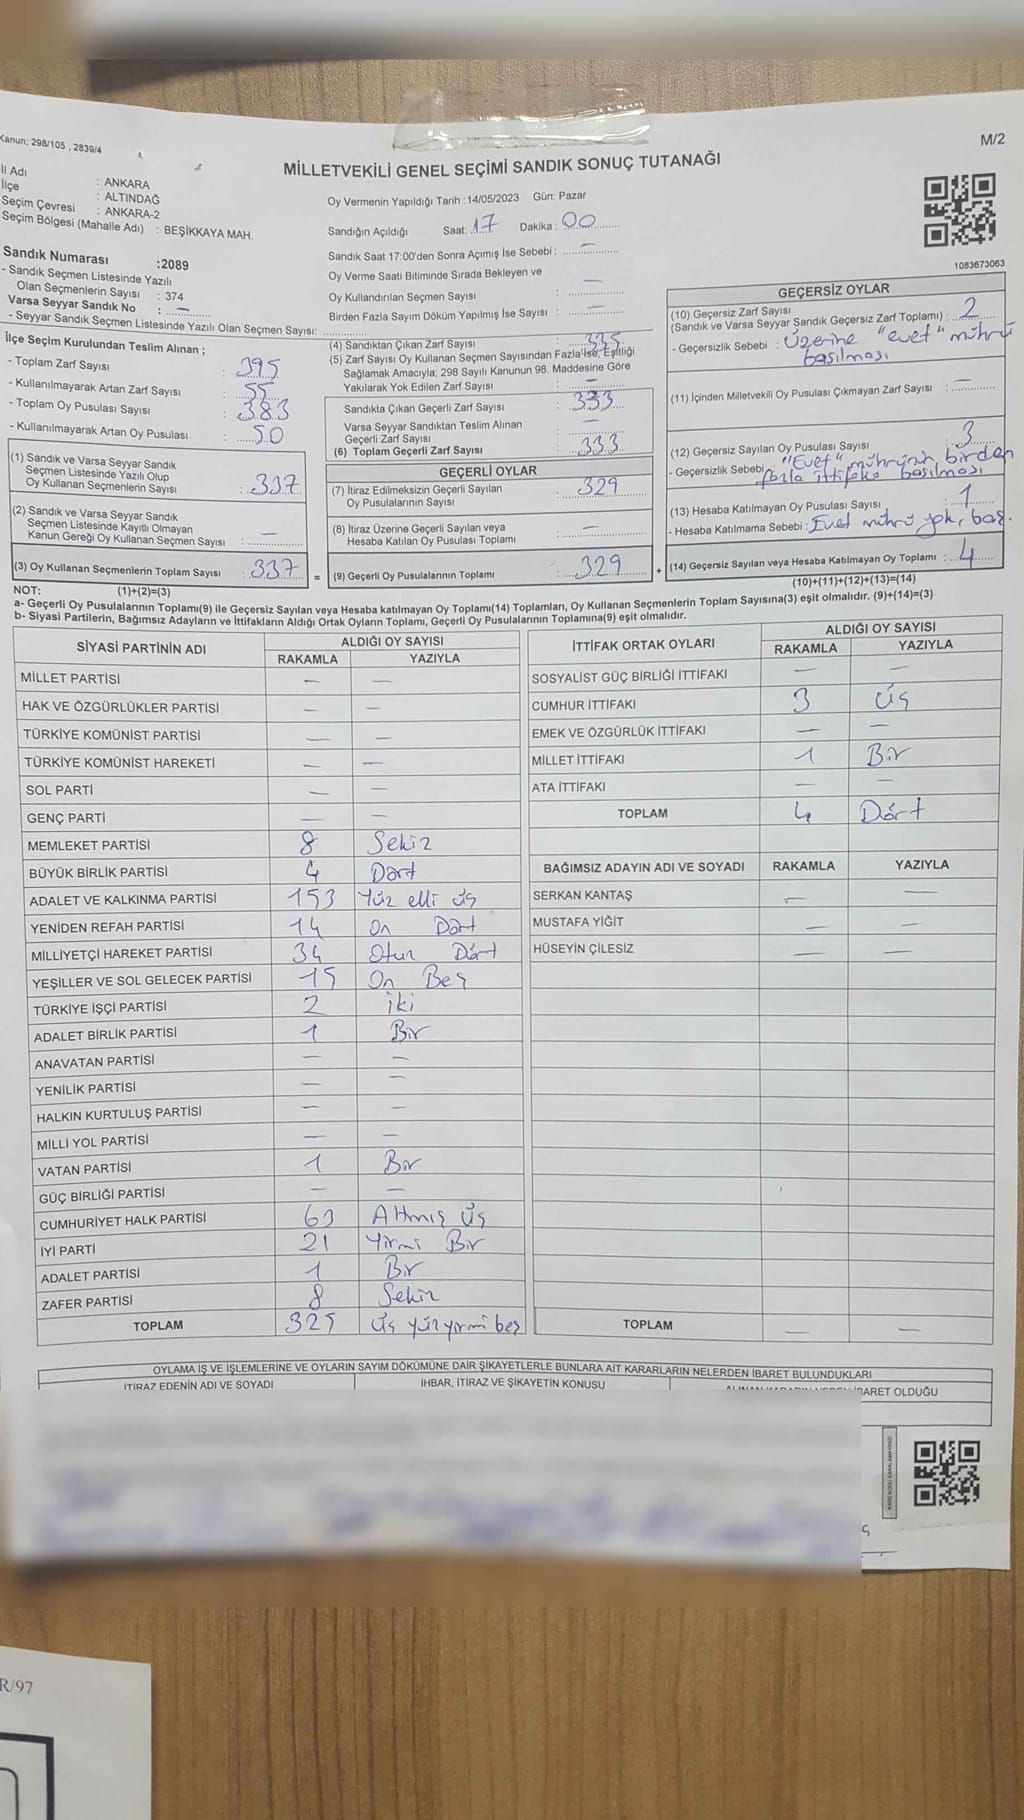 Kanun; 298/105 , 2839/4
M/2
MİLLETVEKİLİ GENEL SEÇİMİ SANDIK SONUÇ TUTANAĞI
İl Adı : ANKARA
İlçe : ALTINDAĞ
Seçim Çevresi : ANKARA-2
Seçim Bölgesi (Mahalle Adı) : BEŞİKKAYA MAH.
Oy Vermenin Yapıldığı Tarih :14/05/2023 Gün: Pazar
Sandığın Açıldığı Saat: 17 Dakika : 00
Sandık Saat 17:00'den Sonra Açımış İse Sebebi : —
Oy Verme Saati Bitiminde Sırada Bekleyen ve
Oy Kullandırılan Seçmen Sayısı : —
Birden Fazla Sayım Döküm Yapılmış İse Sayısı : —
1083673063
Sandık Numarası :2089
- Sandık Seçmen Listesinde Yazılı
Olan Seçmenlerin Sayısı : 374
Varsa Seyyar Sandık No : —
- Seyyar Sandık Seçmen Listesinde Yazılı Olan Seçmen Sayısı:
İlçe Seçim Kurulundan Teslim Alınan ;
- Toplam Zarf Sayısı : 395
- Kullanılmayarak Artan Zarf Sayısı : 55
- Toplam Oy Pusulası Sayısı : 383
- Kullanılmayarak Artan Oy Pusulası : 50
(1) Sandık ve Varsa Seyyar Sandık
Seçmen Listesinde Yazılı Olup
Oy Kullanan Seçmenlerin Sayısı : 337
(2) Sandık ve Varsa Seyyar Sandık
Seçmen Listesinde Kayıtlı Olmayan
Kanun Gereği Oy Kullanan Seçmen Sayısı : —
(3) Oy Kullanan Seçmenlerin Toplam Sayısı : 337 =
(4) Sandıktan Çıkan Zarf Sayısı : 335
(5) Zarf Sayısı Oy Kullanan Seçmen Sayısından Fazla İse, Eşitliği
Sağlamak Amacıyla; 298 Sayılı Kanunun 98. Maddesine Göre
Yakılarak Yok Edilen Zarf Sayısı : —
Sandıkta Çıkan Geçerli Zarf Sayısı : 333
Varsa Seyyar Sandıktan Teslim Alınan
Geçerli Zarf Sayısı : —
(6) Toplam Geçerli Zarf Sayısı : 333
GEÇERLİ OYLAR
(7) İtiraz Edilmeksizin Geçerli Sayılan
Oy Pusulalarının Sayısı : 329
(8) İtiraz Üzerine Geçerli Sayılan veya
Hesaba Katılan Oy Pusulası Toplamı : —
(9) Geçerli Oy Pusulalarının Toplamı : 329 +
GEÇERSİZ OYLAR
(10) Geçersiz Zarf Sayısı
(Sandık ve Varsa Seyyar Sandık Geçersiz Zarf Toplamı) : 2
- Geçersizlik Sebebi : Üzerine "evet" mührü
basılması
(11) İçinden Milletvekili Oy Pusulası Çıkmayan Zarf Sayısı : —
(12) Geçersiz Sayılan Oy Pusulası Sayısı : 3
- Geçersizlik Sebebi : "Evet" mührünün birden
fazla ittifaka basılması
(13) Hesaba Katılmayan Oy Pusulası Sayısı : 1
- Hesaba Katılmama Sebebi : Evet mührü yok, boş.
(14) Geçersiz Sayılan veya Hesaba Katılmayan Oy Toplamı : 4
(10)+(11)+(12)+(13)=(14)
NOT: (1)+(2)=(3)
a- Geçerli Oy Pusulalarının Toplamı(9) ile Geçersiz Sayılan veya Hesaba katılmayan Oy Toplamı(14) Toplamları, Oy Kullanan Seçmenlerin Toplam Sayısına(3) eşit olmalıdır. (9)+(14)=(3)
b- Siyasi Partilerin, Bağımsız Adayların ve İttifakların Aldığı Ortak Oyların Toplamı, Geçerli Oy Pusulalarının Toplamına(9) eşit olmalıdır.
SİYASİ PARTİNİN ADI ALDIĞI OY SAYISI
RAKAMLA YAZIYLA
MİLLET PARTİSİ — —
HAK VE ÖZGÜRLÜKLER PARTİSİ — —
TÜRKİYE KOMÜNİST PARTİSİ — —
TÜRKİYE KOMÜNİST HAREKETİ — —
SOL PARTİ — —
GENÇ PARTİ — —
MEMLEKET PARTİSİ 8 Sekiz
BÜYÜK BİRLİK PARTİSİ 4 Dört
ADALET VE KALKINMA PARTİSİ 153 Yüz elli üç
YENİDEN REFAH PARTİSİ 14 On Dört
MİLLİYETÇİ HAREKET PARTİSİ 34 Otuz Dört
YEŞİLLER VE SOL GELECEK PARTİSİ 15 On Beş
TÜRKİYE İŞÇİ PARTİSİ 2 iki
ADALET BİRLİK PARTİSİ 1 Bir
ANAVATAN PARTİSİ — —
YENİLİK PARTİSİ — —
HALKIN KURTULUŞ PARTİSİ — —
MİLLİ YOL PARTİSİ — —
VATAN PARTİSİ 1 Bir
GÜÇ BİRLİĞİ PARTİSİ — —
CUMHURİYET HALK PARTİSİ 63 Altmış üç
İYİ PARTİ 21 Yirmi Bir
ADALET PARTİSİ 1 Bir
ZAFER PARTİSİ 8 Sekiz
TOPLAM 325 üç yüz yirmi beş
İTTİFAK ORTAK OYLARI ALDIĞI OY SAYISI
RAKAMLA YAZIYLA
SOSYALİST GÜÇ BİRLİĞİ İTTİFAKI — —
CUMHUR İTTİFAKI 3 üç
EMEK VE ÖZGÜRLÜK İTTİFAKI — —
MİLLET İTTİFAKI 1 Bir
ATA İTTİFAKI — —
TOPLAM 4 Dört
BAĞIMSIZ ADAYIN ADI VE SOYADI RAKAMLA YAZIYLA
SERKAN KANTAŞ — —
MUSTAFA YİĞİT — —
HÜSEYİN ÇİLESİZ — —
TOPLAM — —
OYLAMA İŞ VE İŞLEMLERİNE VE OYLARIN SAYIM DÖKÜMÜNE DAİR ŞİKAYETLERLE BUNLARA AİT KARARLARIN NELERDEN İBARET BULUNDUKLARI
İTİRAZ EDENİN ADI VE SOYADI İHBAR, İTİRAZ VE ŞİKAYETİN KONUSU İBARET OLDUĞU
R/97